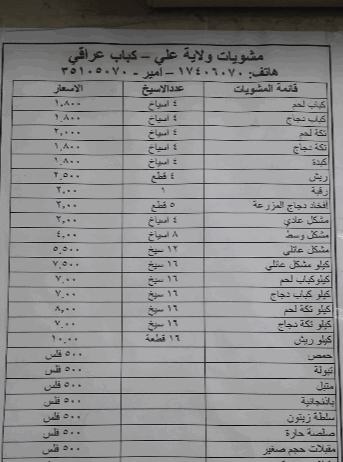 مشويات ولاية علي - كباب عراقي
هاتف: ١٧٤٠٦٠٧٠ - امير - ٣٥١٠٥٠٧٠
قائمة المشويات عددالاسيخ الاسعار
كباب لحم ٤ اسياخ ١,٨٠٠
كباب دجاج ٤ اسياخ ١,٨٠٠
تكة لحم ٤ اسياخ ٢,٠٠٠
تكة دجاج ٤ اسياخ ١,٨٠٠
كبدة ٤ اسياخ ١,٨٠٠
ريش ٤ قطع ٢,٥٠٠
رقبة ١ ٢,٠٠
افخاد دجاج المزرعة ٥ قطع ٢,٠٠
مشكل عادي ٤ اسياخ ٢,٠٠
مشكل وسط ٨ اسياخ ٤,٠٠
مشكل عائلي ١٢ سيخ ٥,٥٠٠
كيلو مشكل عائلي ١٦ سيخ ٧,٥٠٠
كيلوكباب لحم ١٦ سيخ ٧,٠٠
كيلو كباب دجاج ١٦ سيخ ٧,٠٠
كيلو تكة لحم ١٦ سيخ ٨,٠٠
كيلو تكة دجاج ١٦ سيخ ٧,٠٠
كيلو ريش ١٦ قطعة ١٠,٠٠
حمص ٥٠٠ فلس
تبولة ٥٠٠ فلس
متبل ٥٠٠ فلس
باذنجانية ٥٠٠ فلس
سلطة زيتون ٥٠٠ فلس
صلصة حارة ٥٠٠ فلس
مقبلات حجم صغير ٥٠٠ فلس